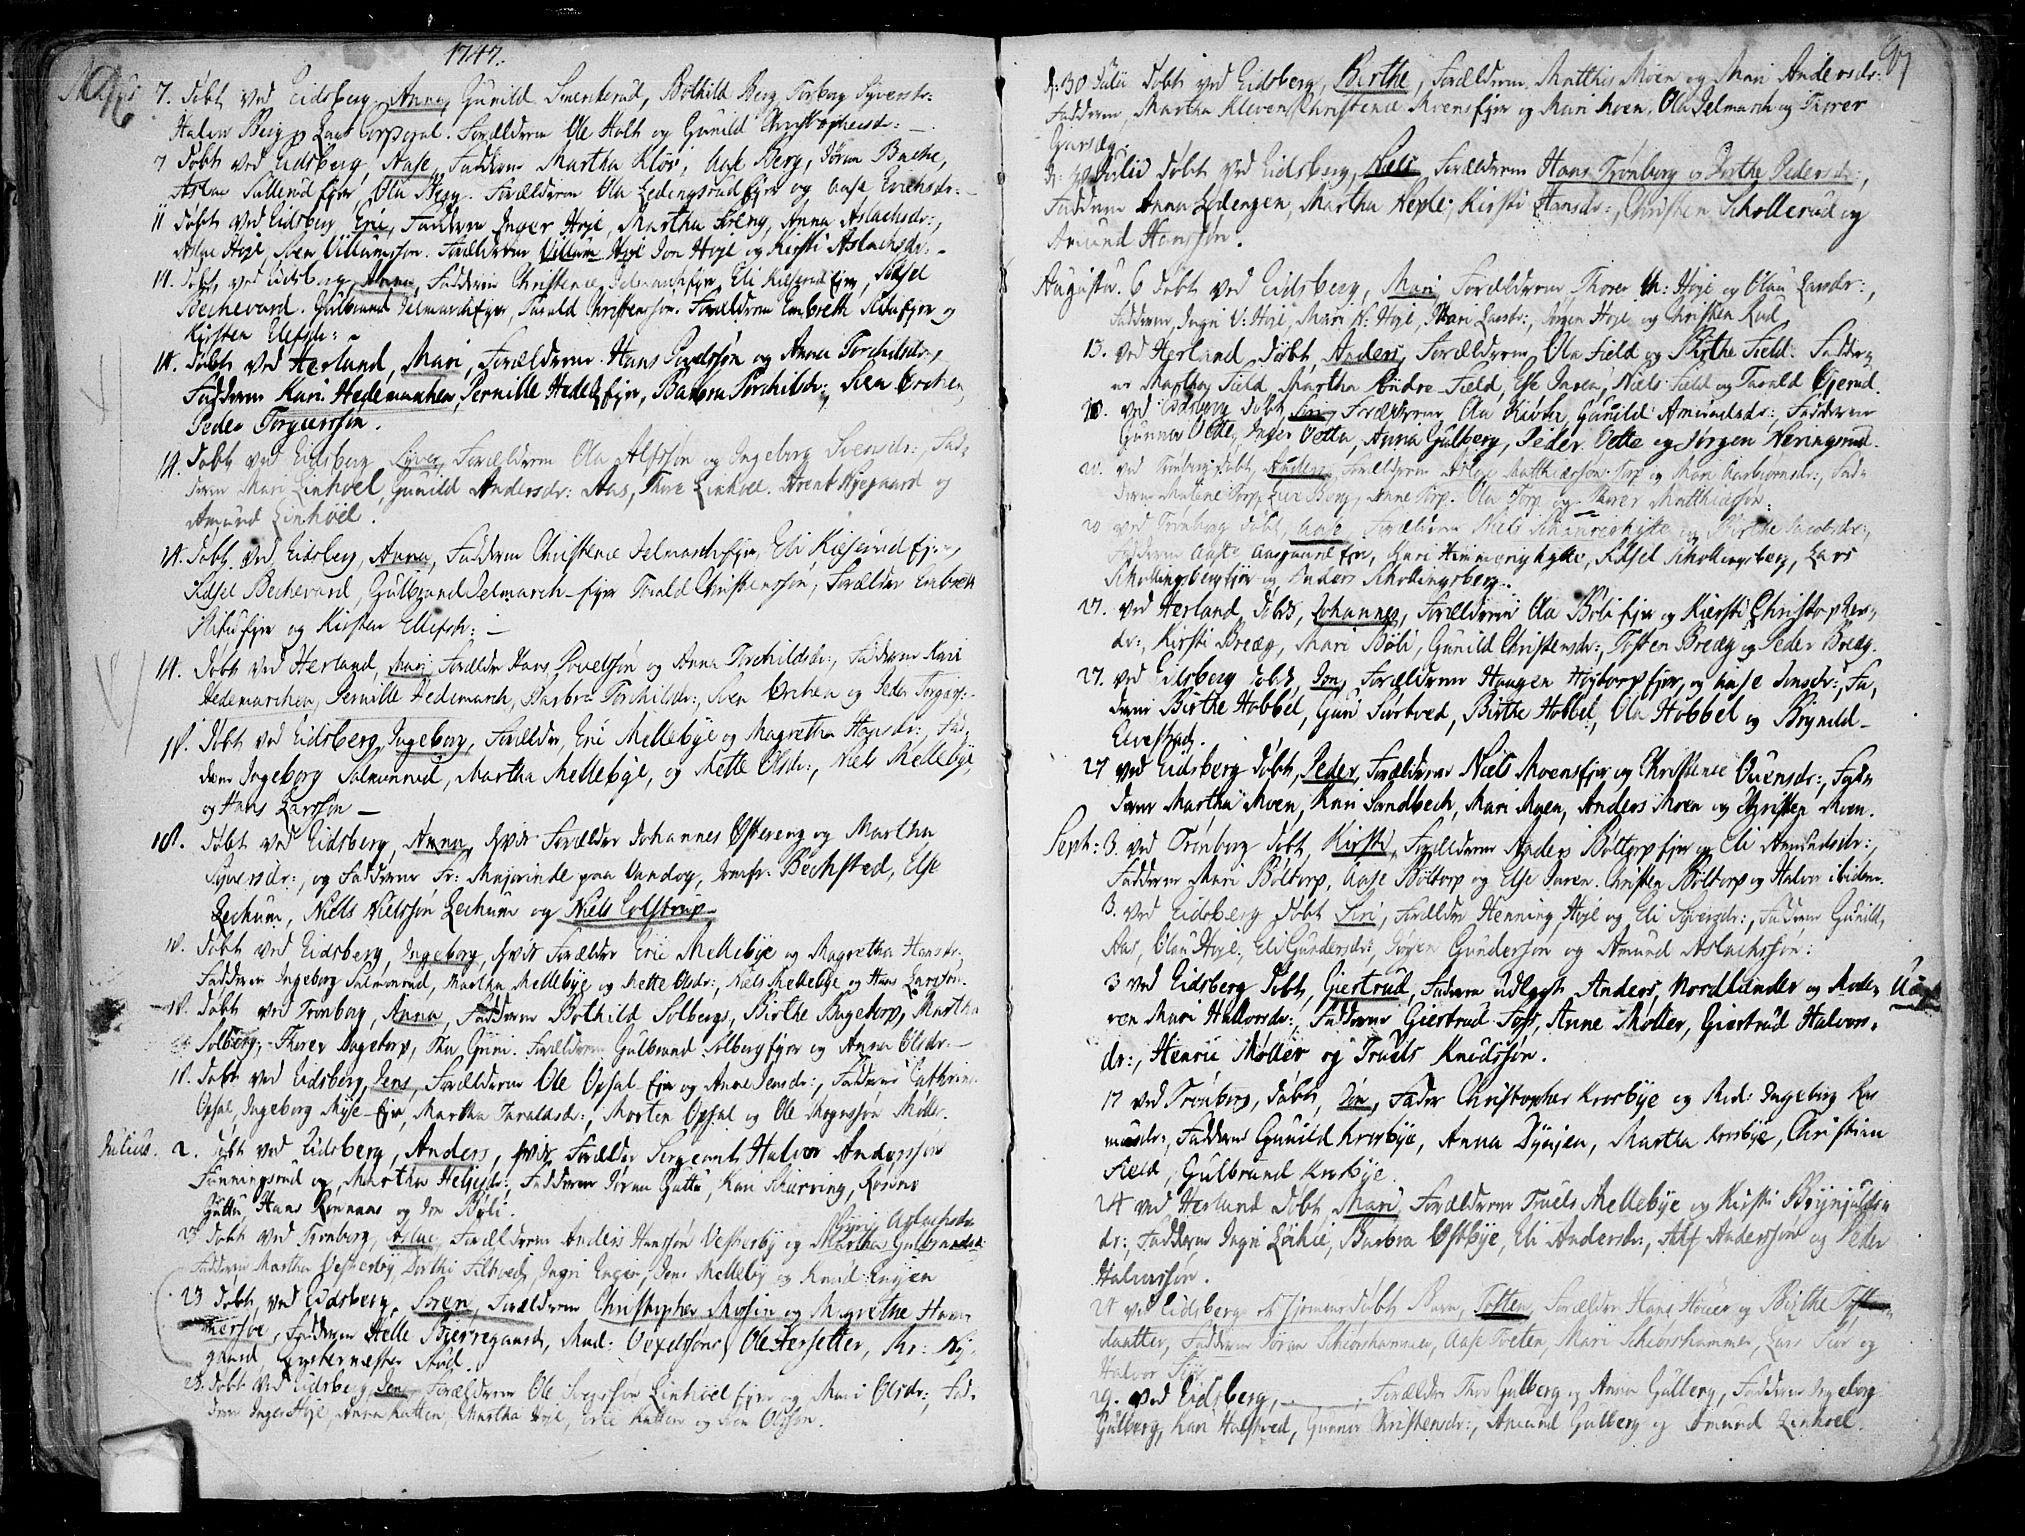 1747.
7. Døbt ved Eidsberg, Anne, Gunild Smerkerud, Bothild Berg, Torborg Syversdr:
Halvor Berg og Lars Corporal. Forældrene Ole Holt og Gunild Christophersdr: —
7 Døbt ved Eidsberg, Aase, Fadderne Martha Kløv, Aase Berg, Jøran Bache,
Aslac Sullerud fier, Ola Berg. Forældrene Ola Ledengsrud Eyer og Aase Erichsdr: —
11 Døbt ved Eidsberg Eric, Fadderne Inger Hoje, Martha, Anna Aslachsdr:,
Aslac Hoje Sven Villumsson. Forældrene Villum Hoje Jon Hoje og Kirsti Aslachsdr: —
14. Døbt ved Eidsberg, Anna, Fadderne Christence Delmarchfier, Eli Kieserudfier, Sidsel
Bechevard. Gulbrand Delmarchfier, Tarald Christensson. Forældrene Embreth fier og
Kirsten Elefsdr: —
14. Døbt ved Herland, Mari, Forældrene Hans Povelssøn og Anna Torchildsdr:,
Fadderne Kari Hedemarchen, Pernille Hedemfier, Barbra Torchildsdr:, Sven Erchen,
Peder Torgierssøn.
14. Døbt ved Eidsberg Syver, Forældrene Ola Alfssøn og Ingeborg Svensdr:, Fad-
derne Mari Linhoel, Gunild Andersdr: Aas, Thore Linhoel. Arent Kyegaard og
Amund Linhoel.
14. Døbt ved Eidsberg, Anna, Fadderne Christence Delmarchfier, Eli Kieserudfier,
Sidsel Bechevard, Gulbrand Delmarch-fier Tarald Christenssøn, Forælder Embreth
fier og Kirsten Ellefsdr: —
14. Døbt ved Herland, Mari Forælder Hans Povelssøn og Anna Torchildsdr:, Fadderne Kari
Hedemarchen, Pernille Hedemarch, Barbra Torchildsdr:, Sven Erchen og Peder Torgiers:
18. Døbt ved Eidsberg, Ingeborg, Forælder, Eric Mellebye og Magretha Hansdr:, Fad-
derne Ingeborg Salmonrud, Martha Mellebye, og Mette Olsdr:, Niels Mellebye,
og Hans Larssøn —
18. Døbt ved Eidsberg, Anna, hvis Forælder Johannes Østereng og Martha
Syversdr:, og Fadderne Fr: Majorinde paa Vandog, Jomfr: Bechsted, Else
Lechum, Niels Nielssøn Lechum og Niels Colstrup —
18. Døbt ved Eidsberg, Ingeborg, hvis Forælder Eric Mellebye og Magretha Hansdr.
Fadderne Ingeborg Salmonrud, Martha Mellebye og Mette Olsdr:, Niels Mellebye og Hans Larssøn.
18. Døbt ved Trønborg, Anna, Fadderne Bothild Solbergs, Birthe Bagetorp, Martha
Solberg, Thorer Bagetorp, Tho Guni. Forældrene Gulbrand Solbergfier og Anna Olsdr: —
18. Døbt ved Eidsberg, Jens, Forældrene Ole Opsal Eyer og Anne Jensdr:, Fadderne Cathrine
Opsal, Ingeborg Myse-fier, Martha Taraldsdr:, Morten Opsal og Ole Mogenssøn Møller.
Julius. 2. Døbt ved Eidsberg, Anders, hvis Forælder Sergeant Halvor Anderssøn
Fonningsrud og Martha Helgesdr:, Fadderne Jøran Guttu, Kari Skurring, Rasmus
Guttu, Hans Ronnaas og Jon Bøli.
Døbt ved Trønborg, Aslac, Forældrene Anders Hanssøn Vesterby og Siri Aslachsdr
Martha Gulbrandsdr
Fadderne Martha Vesterby, Dorthi Silved, Ingri Engen, Jens Melleby og Knud Engen
23 Døbt ved Eidsberg, Soren, Forældrene Christopher Mossin og Magrethe Ham-
mersøe, Fadderne Helle Bjerregaard, Mad: Voxelssøns, Ole Herseter, Mr: Ny-
gaard, Qvartermester Stud.
23. Døbt ved Eidsberg, Jens Forældrene Ole Linhoel fier og Mari Olsdr:, Fad-
derne Inger Hoje, Anna Katten, Martha Hoje, Eric Katten og Jon Olssøn.
97
D: 30 Julii Døbt ved Eidsberg, Birthe, Forældrene Matthis Moen og Mari Andersdr:
Fadderne, Martha Kleven, Christence Moensfier og Mari Moen, Ola Delmarch og Thorer
Garsæg.
D: 30 Julii døbt ved Eidsberg, Niels, Forældrene Hans Trønborg og Birthe Pedersdr:,
Fadderne Anna Lodengen, Martha Heple, Kirsti Hansdr:, Christen Schollerud og
Amund Hanssøn.
Augustus. 6 døbt ved Eidsberg, Mari, Forældrene, Thorer N: Hoje og Olau Larsdr:,
Fadderne, Ingri V: Hoje, Mari N: Hoje, Mari Larsdr:, Jørgen Hoje og Christen Rud
13. ved Herland døbt, Anders, Forældrene, Ola Field og Birthe Field: Fadder-
ne Martha Field, Martha Andre Field, Else Jaren, Niels Field og Tarald Gjerud.
20. ved Eidsberg døbt, Siri, Forældrene, Ola, Gunild Amundsdr:, Fadderne
Gunnor Vette, Inger Vette, Anna Gulberg, Peder Vette og Jørgen Næringsrud.
20. ved Trønborg døbt, Anders, Forældrene Aslac Matthiæssøn Torp og Mari Aasbjørnsdr:, Fad-
derne Malene Torp, Siri Berg, Anne Torp. Ola Torp og Thorer Matthiassøn.
20 ved Trønborg døbt, Aase, Forældrene Niels og Birthe Jacobsdr:,
Fadderne Aaste Aasgaard fier, Kari Himmerighytte, Sidsel Schollingsberg, Lars
Schollingsbergfier og Anders Schollingsberg.
27. ved Herland døbt, Johannes, Forældrene Ola Bøli fier og Kiersti Christopher-
dr:, Kirsti Breæg, Mari Bøli, Gunild Christensdr:, Tosten Breæg og Peder Breæg.
27. ved Eidsberg døbt, Jon, Forældrene Haagen Hojtorp fier, og Aase Jensdr:, Fad-
derne Birthe Hobbel, Guri Sortved, Birthe Hobbel, Ola Hobbel og Brynild
Elvestad.
27 ved Eidsberg døbt, Peder, Forældrene Niels Moensfier og Christence Ouensdr:, Fad-
derne Martha Moen, Kari Sandbech, Mari Moen, Anders Moen og Christen Moen.
Sept: 3. ved Trønborg Døbt, Kirsti, Forældrene Anders Bøltorpfier og Eli Amundsdr:,
Fadderne Mari Bøltorp, Aase Bøltorp og Else Jaren. Christen Bøltorp og Halvor ibidem.
3. ved Eidsberg døbt Siri, Forælder Henning Hoje og Eli Syversdr:, Fadderne Gunild
Aas, Olau Hoje, Eli Gundersdr:, Jørgen Gunderssøn og Amund Aslachssøn:
3 ved Eidsberg døbt, Giertrud, Faderen udlagt Anders Nordlænder og Mode-
ren Mari Halvorsdr:, Fadderne Giertrud Foss, Anne Møller, Giertrud Halvors-
dr:, Henric Møller og Truels Knudssøn.
Uægte
17 ved Trønborg, døbt, Jon, Fader Christopher Krosbye og Mod: Ingeborg Ras-
musdr:, Fadderne Gunild Krosbye, Anna Dynjen, Martha Krosbye, Christian
Field, Gulbrand Krosbye.
24 ved Herland døbt Mari, Forældrene Truels Mellebye og Kirsti Brynjulds-
dr:, Fadderne Ingri Løchie, Barbra Østbye, Eli Andersdr:, Alf Anderssøn og Peder
Halvorssøn.
24 ved Eidsberg et hjemmedøbt Barn, Tosten, Forælder Hans Hauer og Birthe Tosten-
daatter, Fadderne Jøran Schiørshammer, Aase Toeten, Mari Schiørshammer, Lars Moer og
Halvor
29. ved Eidsberg, — Forælder Thor Gulberg og Anna Gulberg, Fadderne Ingeborg
Gulberg, Kari Hulstved, Gunnor Christensdr:, Amund Gulberg og Amund Linhoel.